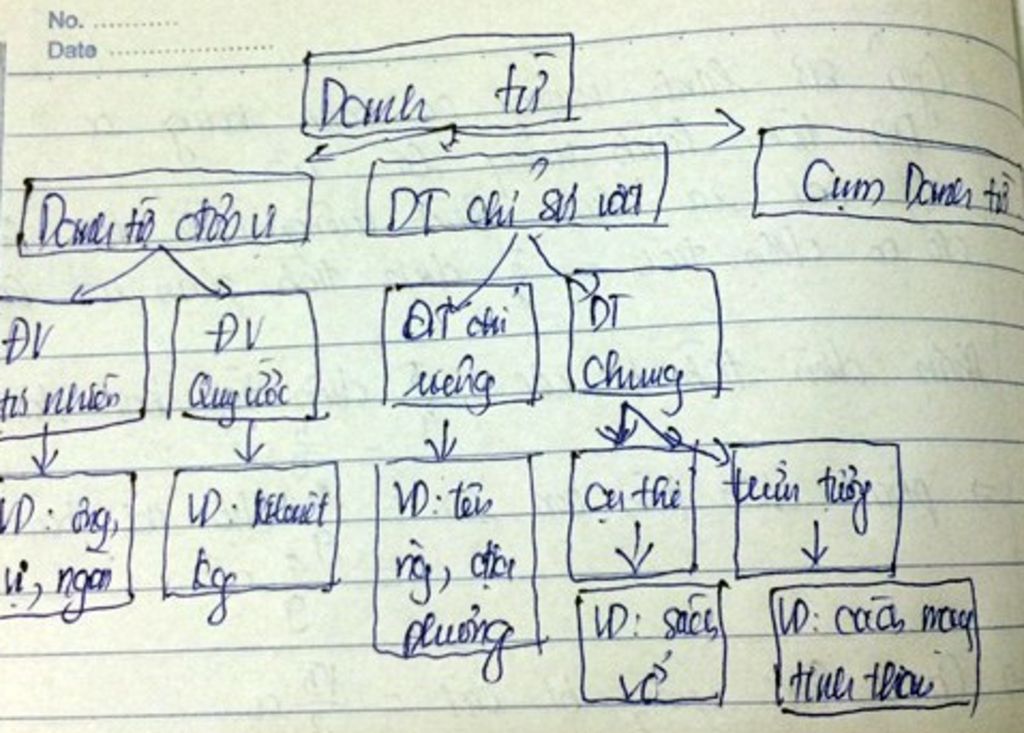 No. ............
Date ........................
Danh từ
Danh từ chỉ đơn vị
DT chỉ sự vật
Cụm Danh từ
ĐV
tự nhiên
ĐV
Quy ước
DT chỉ
riêng
DT
chung
VD: ông,
vị, ngài
VD:
kg
VD: tên
ng, địa
phương
cụ thể
trừu tượng
VD: sách
vở
VD: cách mạng
tinh thần